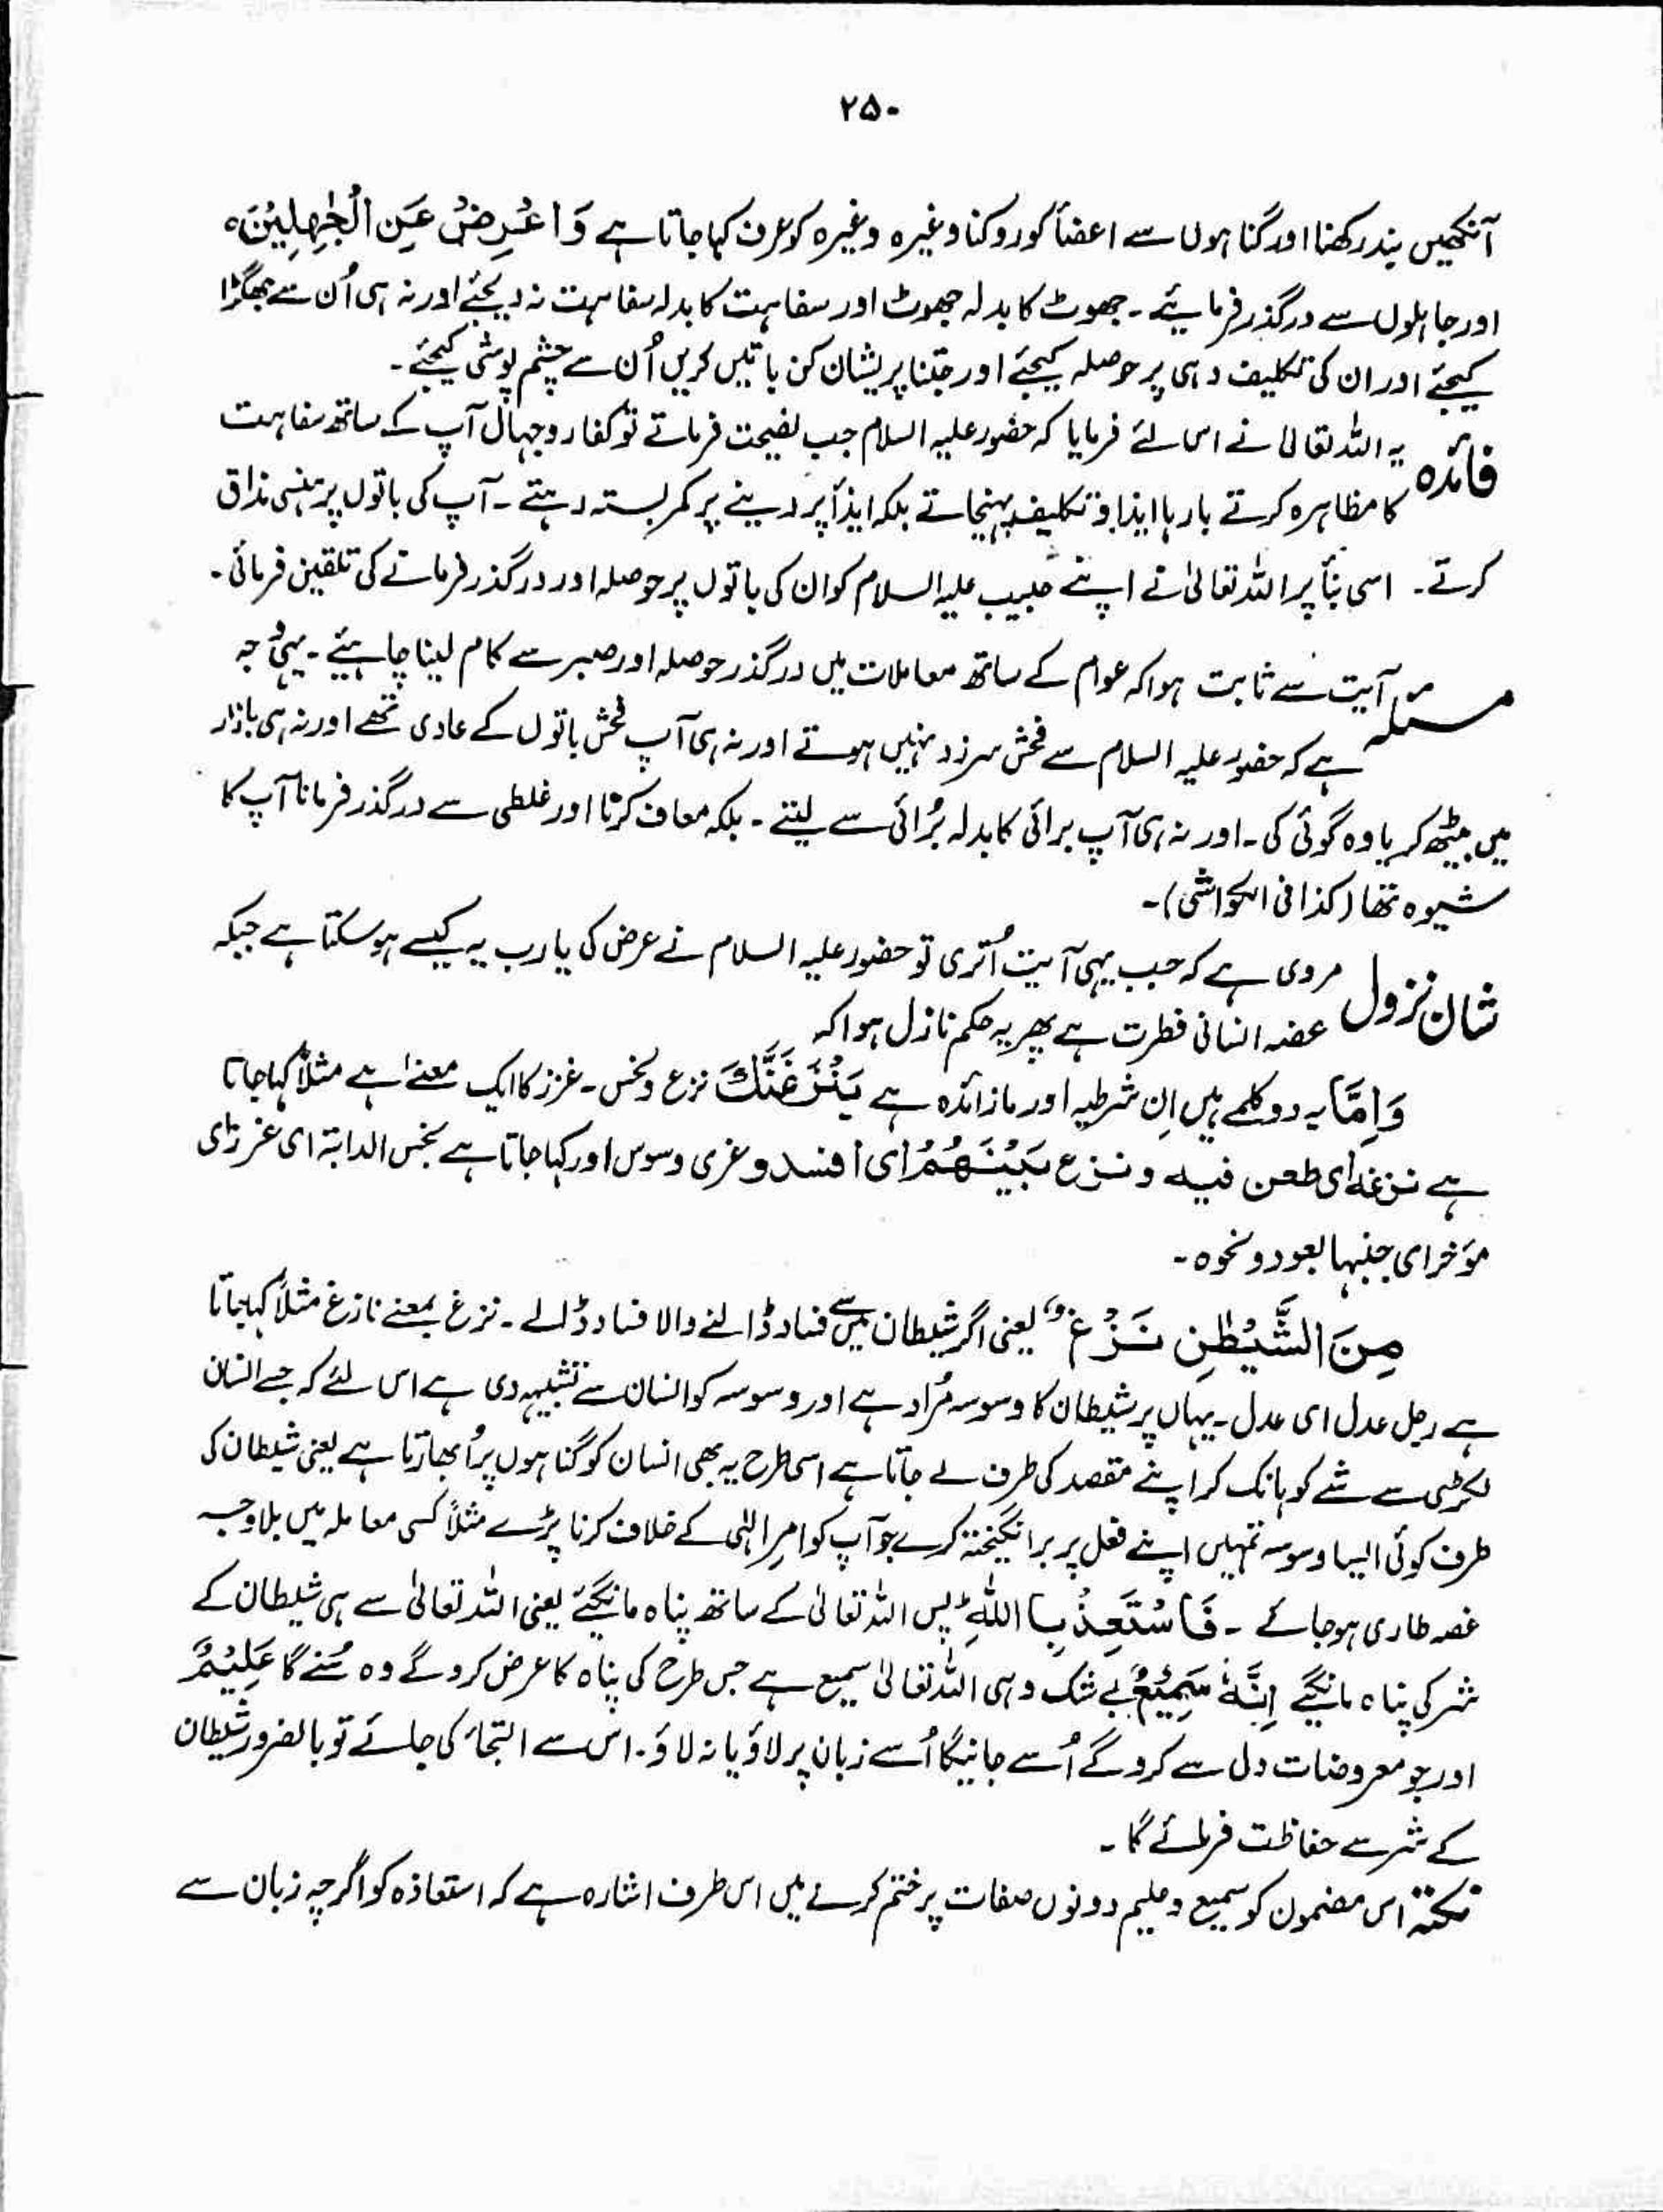 ۲۵۰
آنکھیں بند رکھنا اور گناہوں سے اعضأ کو روکنا وغیرہ وغیرہ کو عرف کہا جاتا ہے وَ اَعْرِضْ عَنِ الْجٰھِلِیْنَ۰
اور جاہلوں سے درگذر فرمایئے ۔ جھوٹ کا بدلہ جھوٹ اور سفاہت کا بدلہ سفاہت نہ دیجئے اور نہ ہی اُن سے جھگڑا
کیجئے اور ان کی تکلیف دہی پر حوصلہ کیجئے اور جتنا پریشان کن باتیں کریں اُن سے چشم پوشی کیجئے ۔
فائدہ یہ اللہ تعالیٰ نے اس لئے فرمایا کہ حضور علیہ السلام جب نصیحت فرماتے تو کفار و جہال آپ کے ساتھ سفاہت
کا مظاہرہ کرتے بارہا ایذا و تکلیف پہنچاتے بلکہ ایذأ پر دینے پر کمر بستہ رہتے ۔ آپ کی باتوں پر ہنسی مذاق
کرتے ۔ اسی بنأ پر اللہ تعالیٰ نے اپنے حبیب علیہ السلام کو ان کی باتوں پر حوصلہ اور درگذر فرمانے کی تلقین فرمائی ۔
مسئلہ آیت سے ثابت ہوا کہ عوام کے ساتھ معاملات میں درگذر حوصلہ اور صبر سے کام لینا چاہیئے ۔ یہی وجہ
ہے کہ حضور علیہ السلام سے فحش سرزد نہیں ہوتے اور نہ ہی آپ فحش باتوں کے عادی تھے اور نہ ہی بازار
میں بیٹھ کر یاوہ گوئی کی ۔ اور نہ ہی آپ برائی کا بدلہ بُرائی سے لیتے ۔ بلکہ معاف کرنا اور غلطی سے درگذر فرمانا آپ کا
شیوہ تھا (کذا فی الکواشی) ۔
شان نزول مروی ہے کہ جب یہی آیت اُتری تو حضور علیہ السلام نے عرض کی یا رب یہ کیسے ہو سکتا ہے جبکہ
غصہ انسانی فطرت ہے پھر یہ حکم نازل ہوا کہ
وَاِمَّا یہ دو کلمے ہیں اِن شرطیہ اور ما زائدہ ہے یَنْزَغَنَّکَ نزع و نخس ۔ غرز کا ایک معنےٰ ہے مثلاً کہا جاتا
ہے نزغہ ای طعن فیہ و نزع بَیْنَھُمْ ای افسد و غری وسوس اور کہا جاتا ہے نخس الدابۃ ای غرز ای
مؤخر ای جنبہا بعود و نحوہ ۔
مِنَ الشَّیْطٰنِ نَزْغٌ یعنی اگر شیطان سے فساد ڈالنے والا فساد ڈالے ۔ نزغ بمعنے نازغ مثلاً کہا جاتا
ہے رجل عدل ای عدل ۔ یہاں پر شیطان کا وسوسہ مُراد ہے اور وسوسہ کو انسان سے تشبیہہ دی ہے اس لئے کہ جیسے انسان
لکڑی سے شے کو ہانک کر اپنے مقصد کی طرف لے جاتا ہے اسی طرح یہ بھی انسان کو گناہوں پر اُبھارتا ہے یعنی شیطان کی
طرف کوئی ایسا وسوسہ تمہیں اپنے فعل پر برانگیختہ کرے جو آپ کو امر الٰہی کے خلاف کرنا پڑے مثلاً کسی معاملہ میں بلاوجہ
غصہ طاری ہو جائے ۔ فَاسْتَعِذْ بِاللّٰہِ پس اللہ تعالیٰ کے ساتھ پناہ مانگیئے یعنی اللہ تعالیٰ سے ہی شیطان کے
شر کی پناہ مانگیے اِنَّہٗ سَمِیْعٌ بے شک وہی اللہ تعالیٰ سمیع ہے جس طرح کی پناہ کا عرض کرو گے وہ سُنے گا عَلِیْمٌ
اور جو معروضات دل سے کرو گے اُسے جانیگا اُسے زبان پر لاؤ یا نہ لاؤ ۔ اس سے التجأ کی جائے تو بالضرور شیطان
کے شر سے حفاظت فرمائے گا ۔
نکتہ اس مضمون کو سمیع و علیم دونوں صفات پر ختم کرنے میں اس طرف اشارہ ہے کہ استعاذہ کو اگرچہ زبان سے